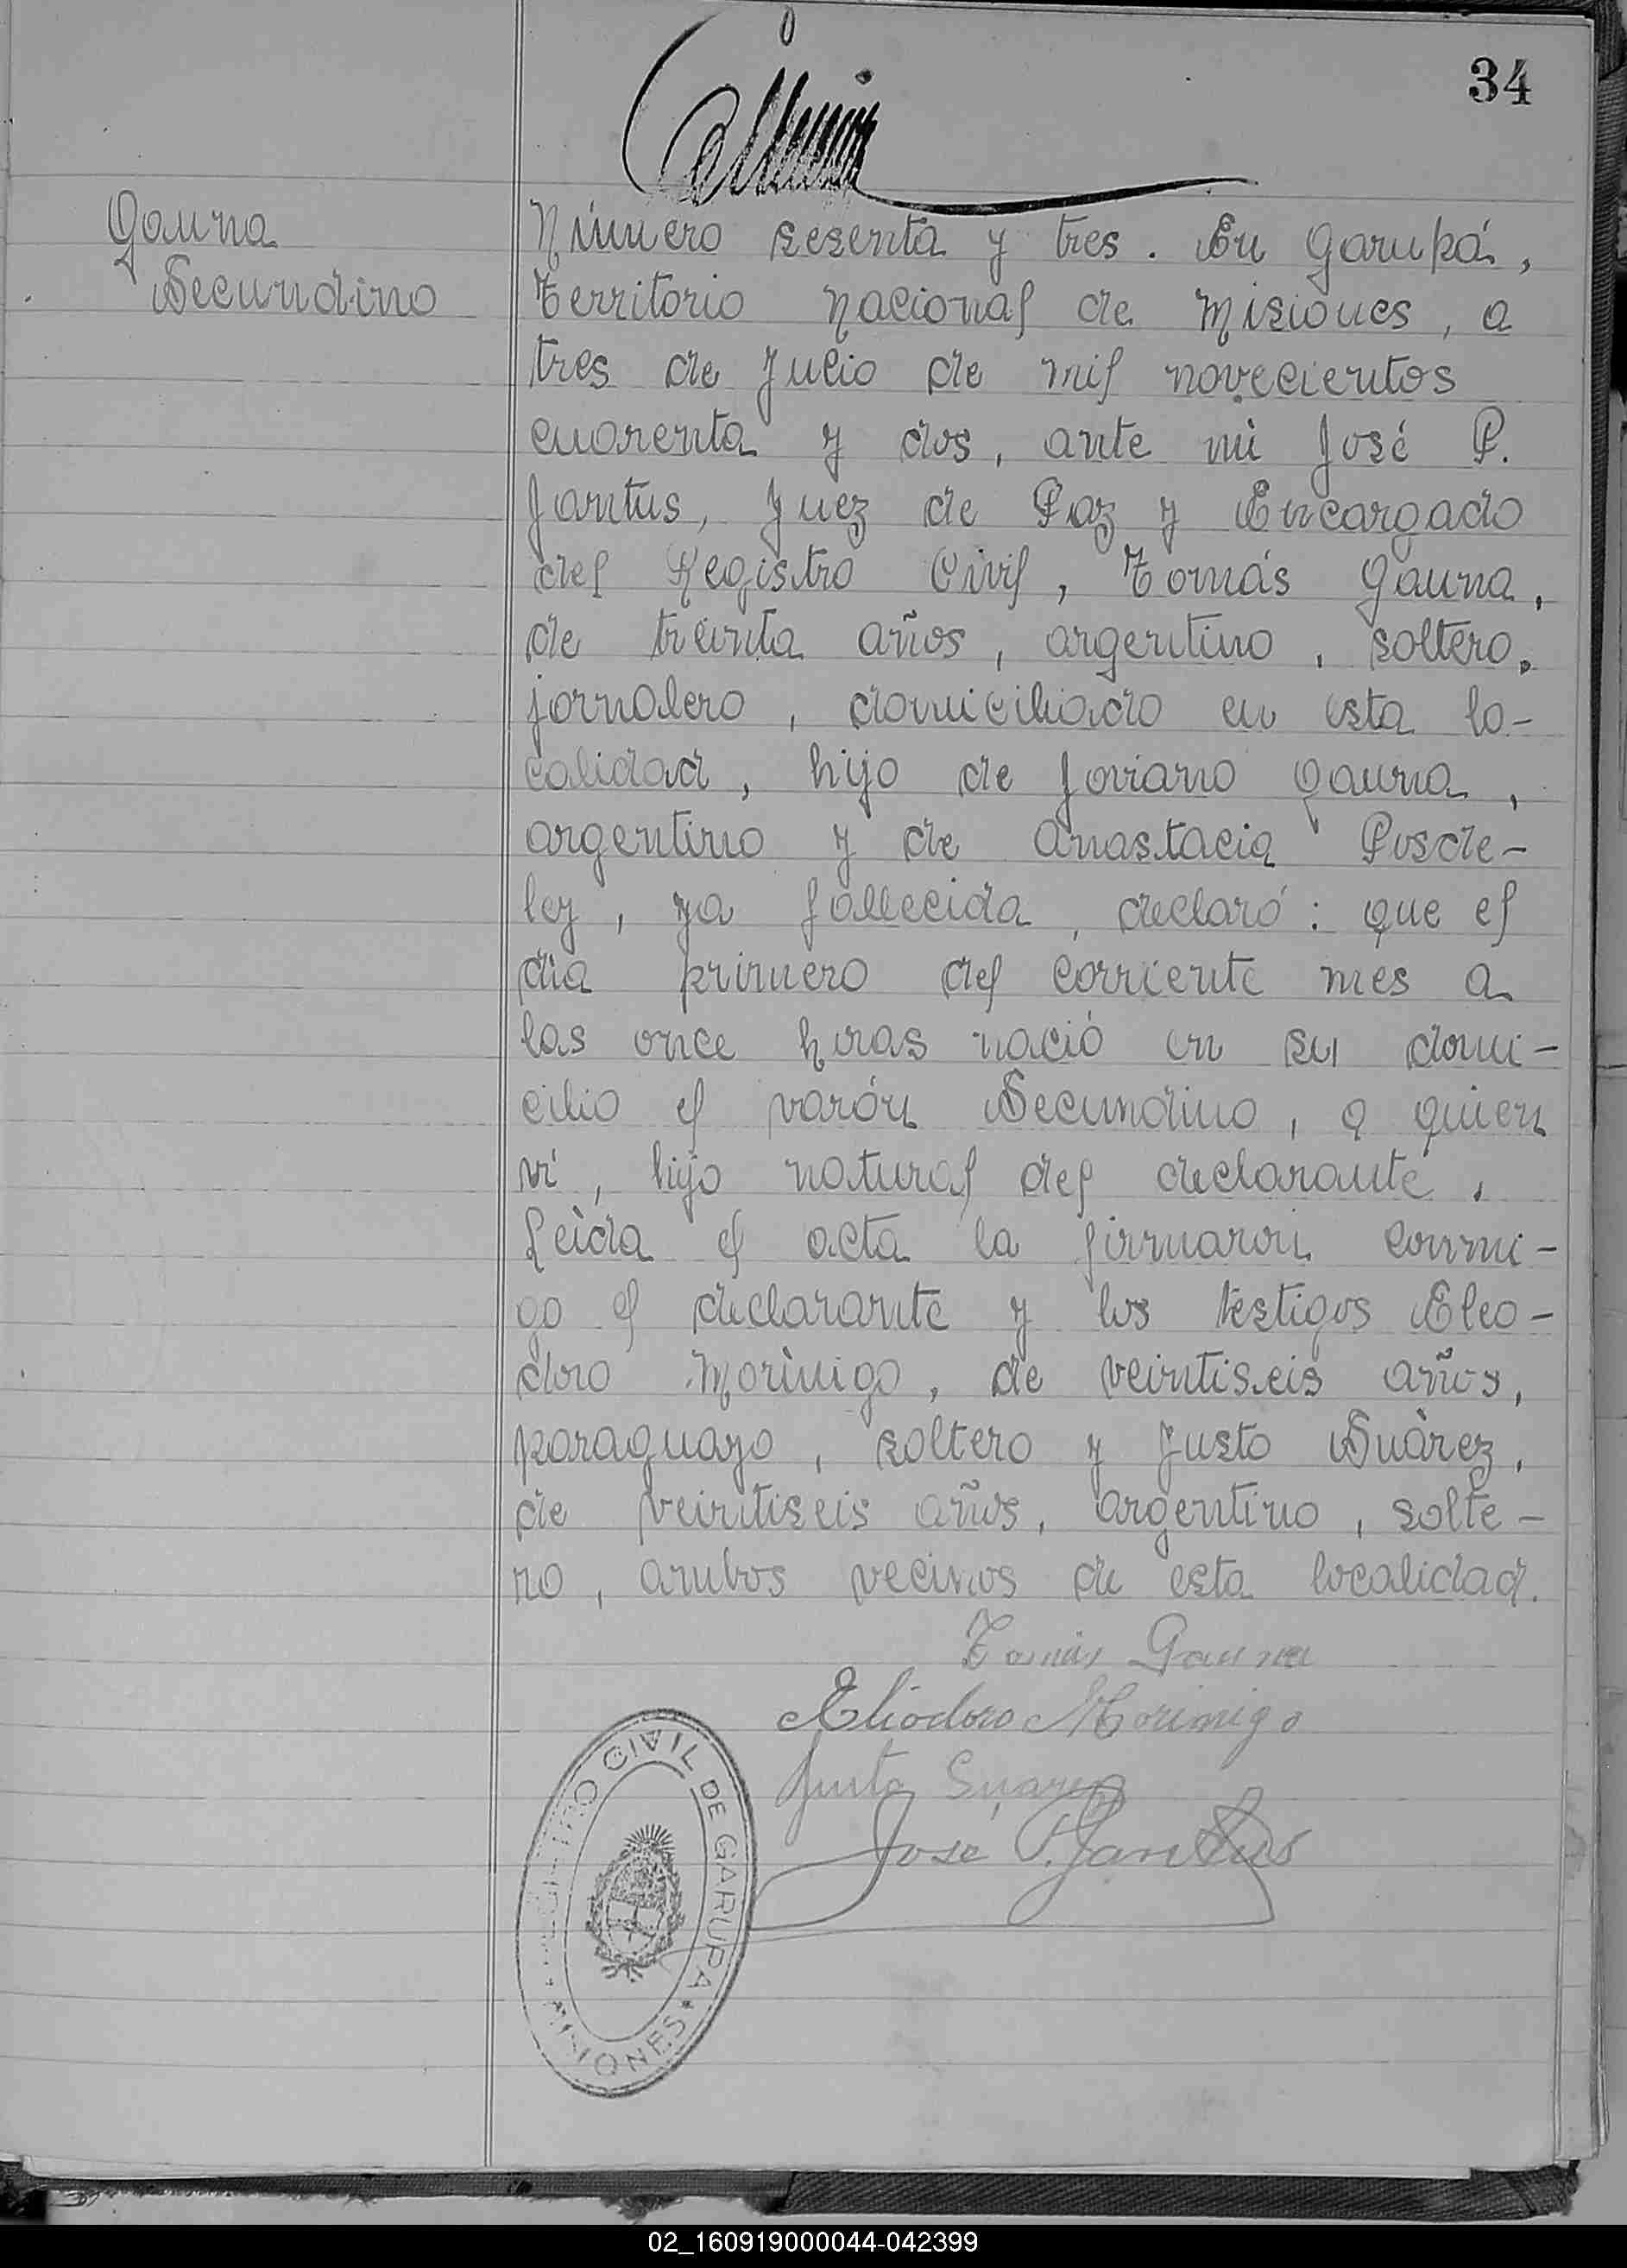 34
Gauna
Secundino
Número sesenta y tres. En Garupá,
territorio nacional de Misiones, a
tres de Julio de mil novecientos
cuarenta y dos, ante mi José P.
Jantus, Juez de Paz y Encargado
del Registro Civil, Tomás Gauna,
de treinta años, argentino, soltero,
jornalero, domiciliado en esta lo-
calidad, hijo de Joviano Gauna,
argentino y de Anastacia Posde-
ley, ya fallecida, declaró: que el
dia primero del corriente mes a
las once horas nació en su domi-
cilio el varón Secundino, a quien
ví, hijo natural del declarante,
Leìda el acta la firmaron conmi-
go el declarante y los testigos Eleo-
doro Morìnigo, de veintiseis años,
paraguayo, soltero y Justo Suàrez,
de veintiseis años, argentino, solte-
ro, ambos vecinos de esta localidad.
Tomás Gauna
Eliodoro Morinigo
Justo Suarez
José P. Jantus
CIVIL DE GARUPA * MISIONES
02_160919000044-042399